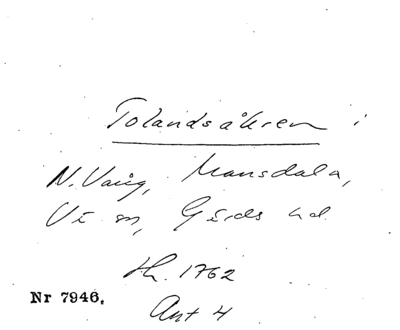 Tolandsåkren i
N. Vång, Mansdala,
Vi sn, Gärds hd.
Ah. 1762
Nr 7946.
Art 4